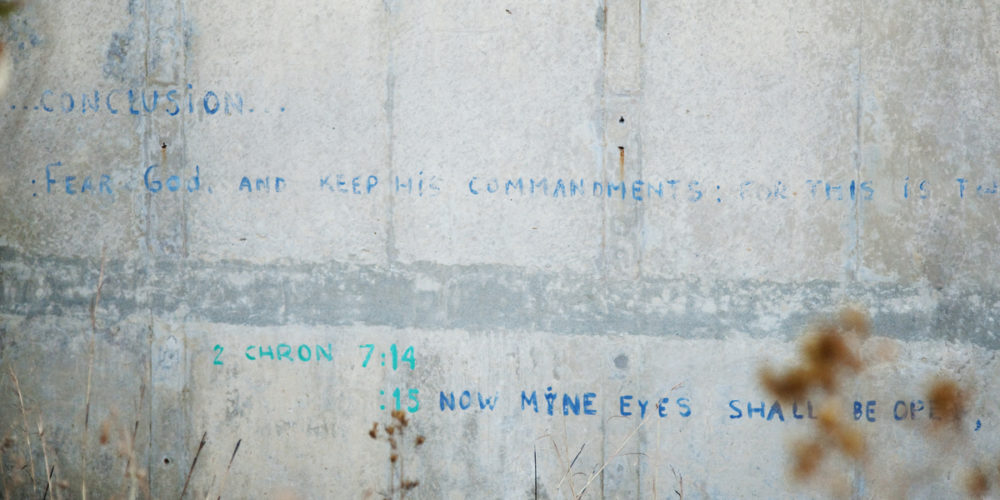 ...CONCLUSION...
:FEAR God, AND KEEP HiS COMMANDMENTS: FOR THIS IS
2 CHRON 7:14
:15 NOW MINE EYES SHALL BE OPEN,